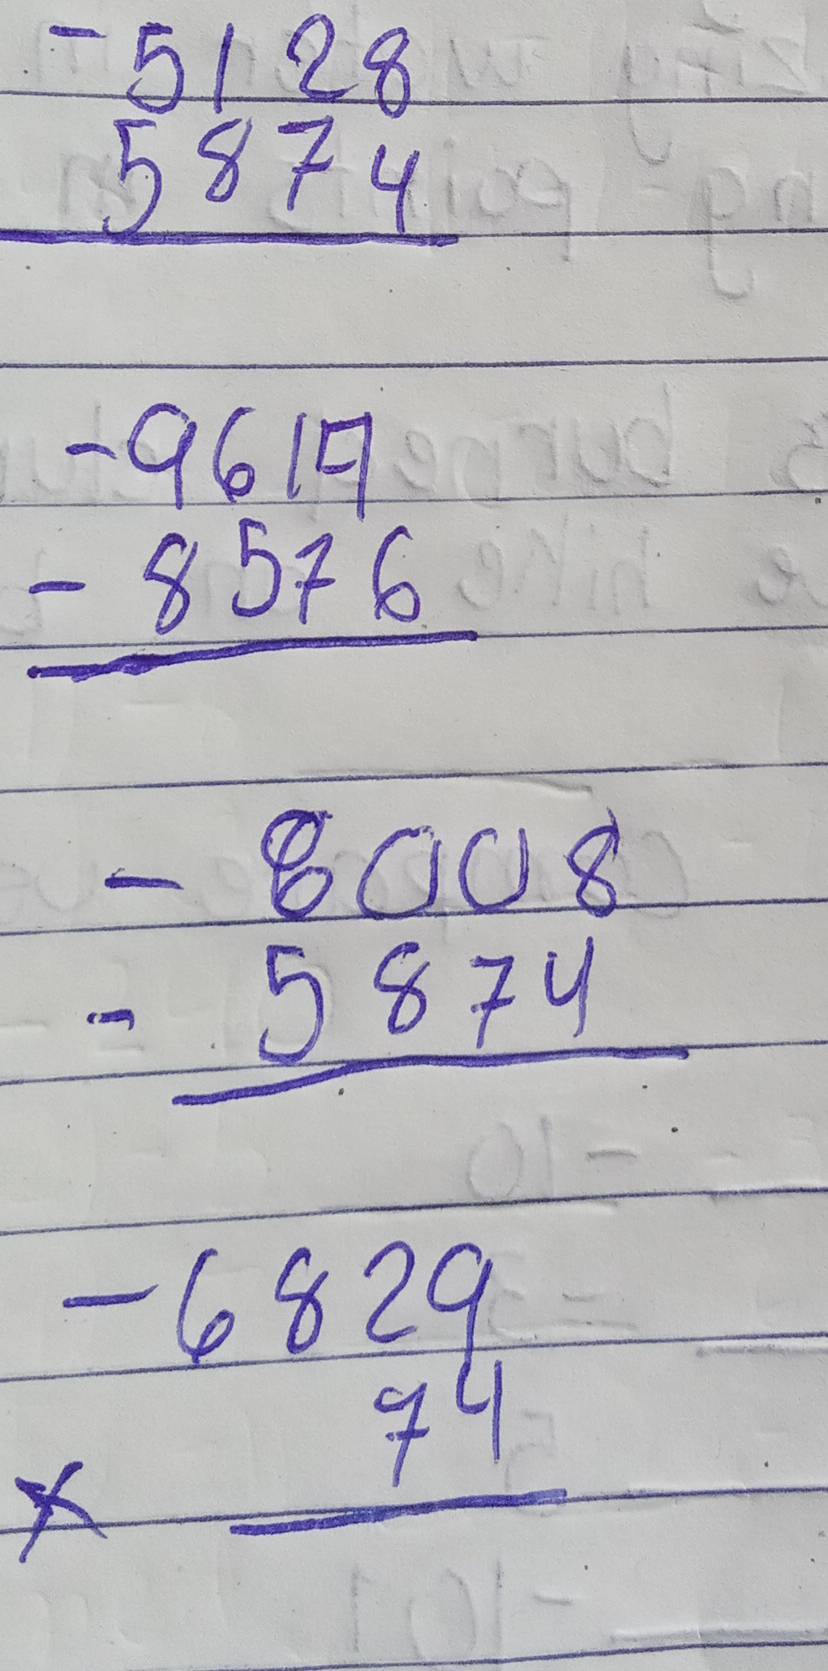 -5128
5874
-9617
- 8576
- 8008
- 5874
-6829
74
x